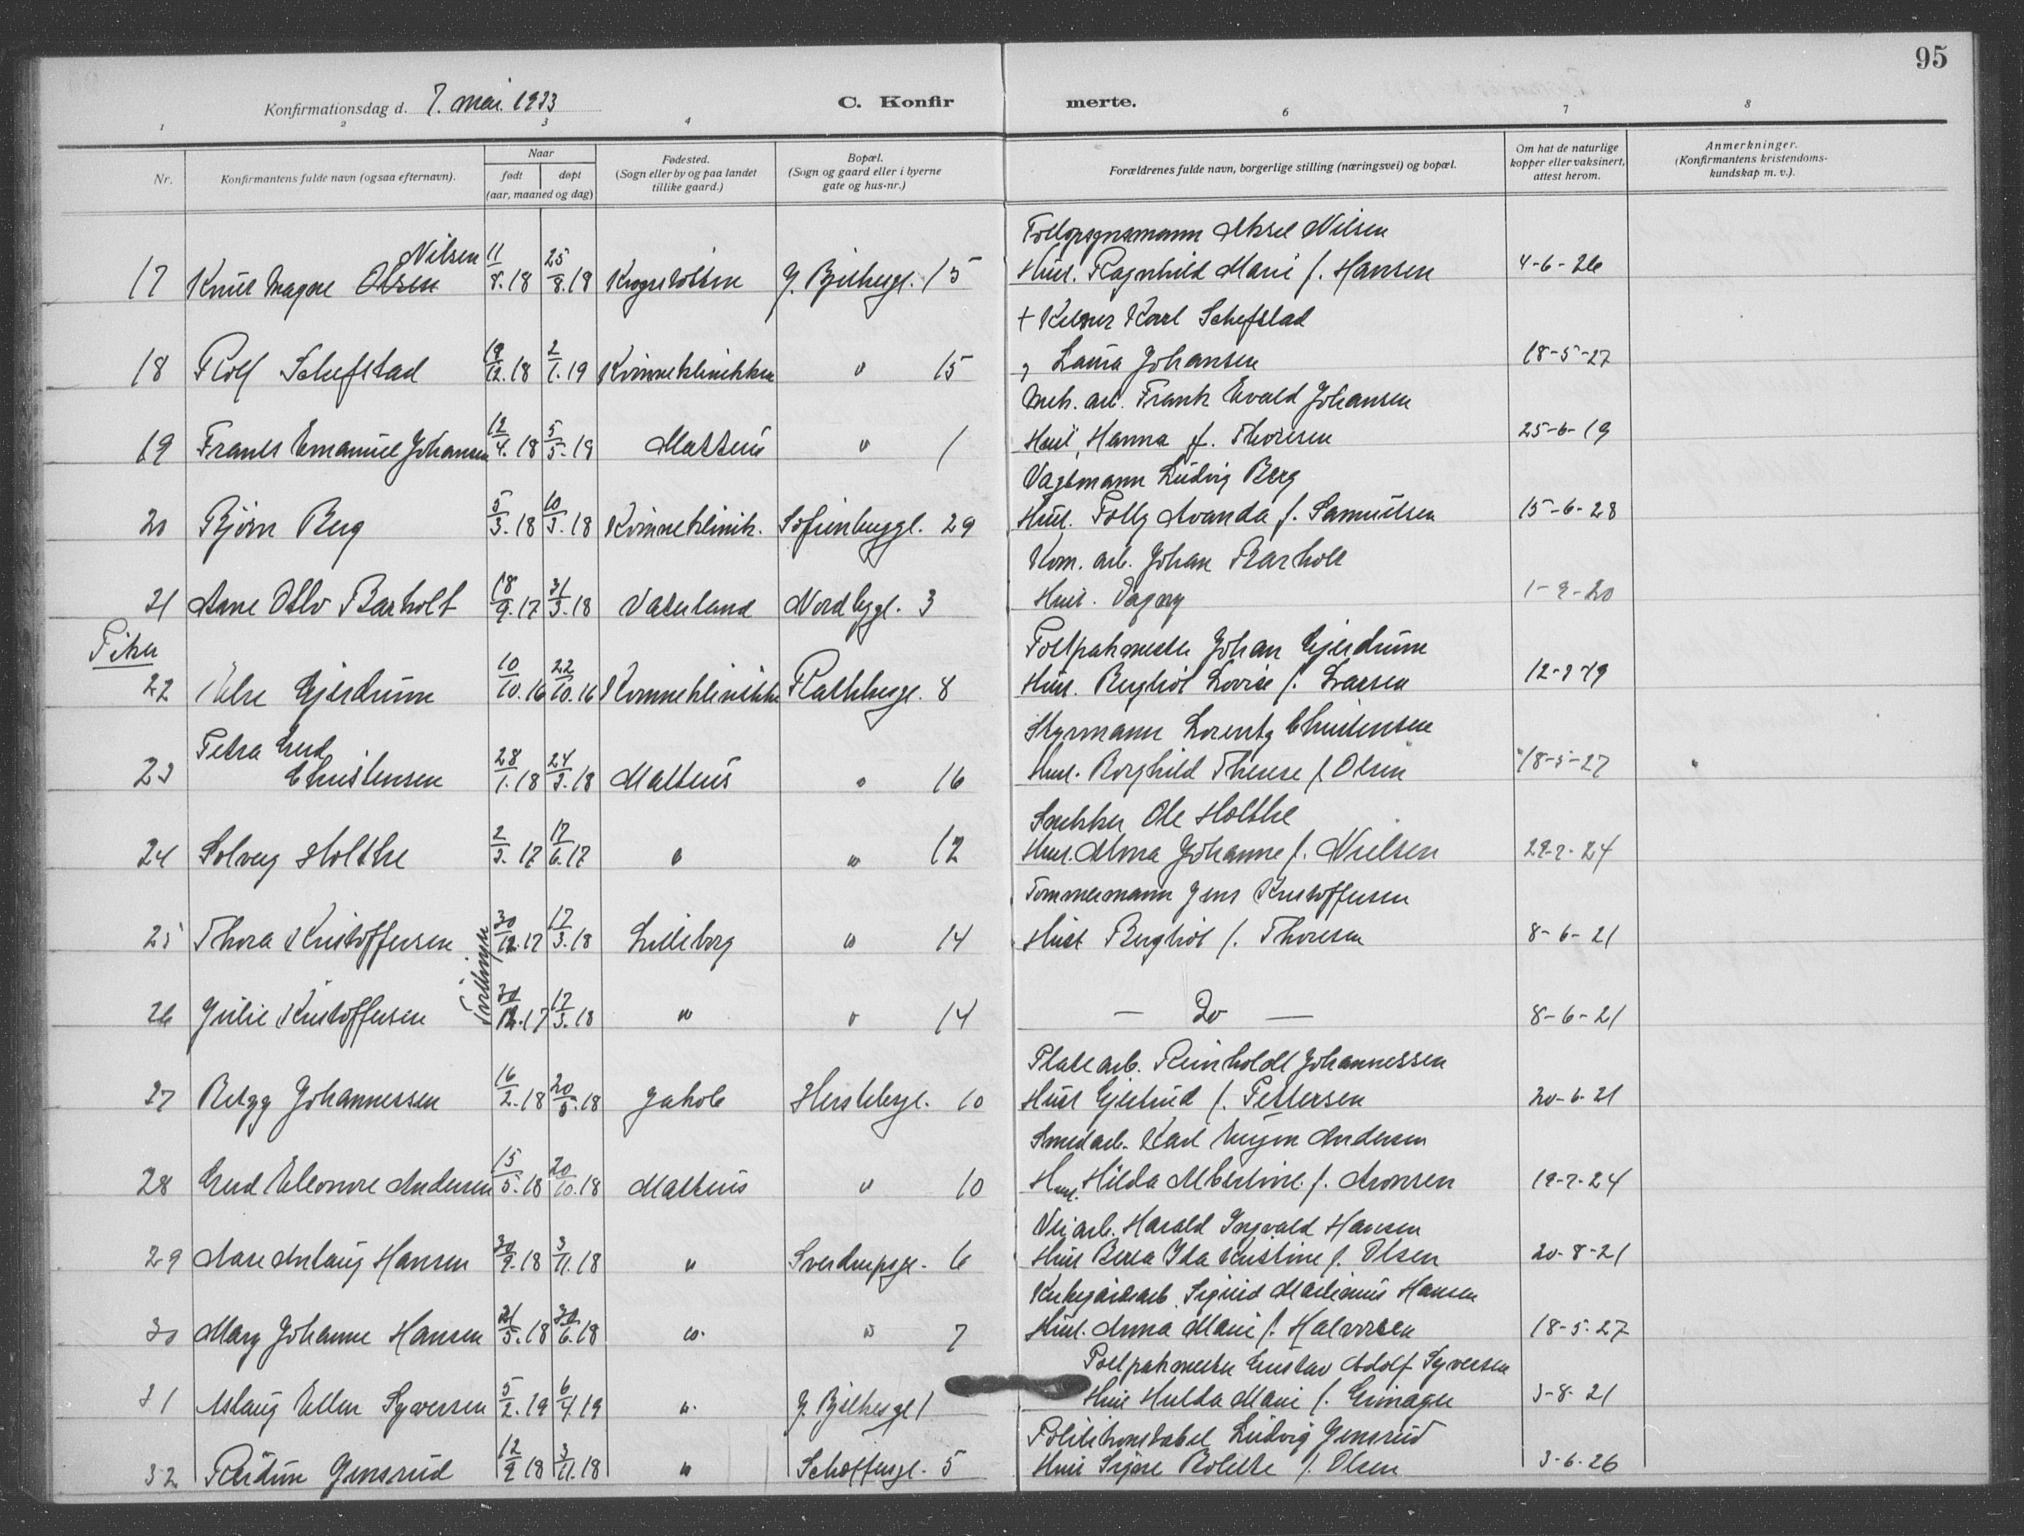 95
Konfirmationsdag d. 7. mai 1933
C. Konfirmerte.
1 2 3 4 6 7 8
Nr. Konfirmantens fulde navn (ogsaa efternavn). Naar født døpt (aar, maaned og dag) Fødested. (Sogn eller by og paa landet tillike gaard.) Bopæl. (Sogn og gaard eller i byerne gate og hus-nr.) Forældrenes fulde navn, borgerlige stilling (næringsvei) og bopæl. Om hat de naturlige kopper eller vaksinert, attest herom. Anmerkninger. (Konfirmantens kristendoms-kundskap m. v.).
Aksel Nilsen
Nilsen
17 Knut Magne Olsen 11/8.18 25/8.18 15 Hust. Ragnhild Marie f. Hansen 4-6-26
+ Kelner Karl Schefstad
18 Rolf Schefstad 19/12.18 2/1.19 Kvinneklinikken " 15 " Laura Johansen 18-5-27
Mek. arb. Frank Evald Johansen
19 Frants Emanuel Johansen 12/4.18 5/5.18 Matteus " 1 Hust. Hanna f. Thoresen 25-6-19
Vagtmann Ludvig Berg
20 Bjørn Berg 5/3.18 10/3.18 Kvinneklinik. Sofienberggt. 29 Hust. Solly Avanda f. Samuelsen 15-6-28
Kom. arb. Johan Barholt
21 Arne Otto Barholt 18/9.17 31/3.18 Vaterland Nordbygt. 3 Hust. Dagny 1-9-20
Piker
Postpakmester Johan Gjerdrum
22 Else Gjerdrum 10/10.16 22/10.16 Kvinneklinikken Rathkesgt. 8 Hust. Bergliot Lovise f. Larsen 12-9-19
Styrmann Lorentz Christensen
23 Petra Gerd Christensen 28/1.18 24/3.18 Matteus " 16 Hust. Borghild Therese f. Olsen 18-5-27
Snekker Ole Holthe
24 Solveig Holthe 2/3.17 17/6.17 " " 12 Hust. Alma Johanne f. Nielsen 29-7-24
Tømmermann Jens Kristoffersen
25 Thora Kristoffersen 30/12.17 17/3.18 Lilleborg " 14 Hust Bergliot f. Thoresen 8-6-21
Tvillinger
26 Julie Kristoffersen 30/12.17 17/3.18 " " 14 — Do — 8-6-21
Platearb. Reinholdt Johannessen
27 Betzy Johannessen 16/2.18 20/5.18 Jakob Herslebsgt. 10 Hust Gjertrud f. Pettersen 20-6-21
Smedarb. Karl Eugen Andersen
28 Gerd Eleonore Andersen 15/5.18 20/10.18 Matteus " 10 Hust. Hilda Albertine f. Aronsen 19-7-24
Veiarb. Harald Ingvald Hansen
29 Aase Aslaug Hansen 30/9.18 3/11.18 " Sverdrupsgt. 6 Hust Berta Ida Kristine f. Olsen 20-8-21
Kirkegårdsarb. Sigurd Marianus Hansen
30 Mary Johanne Hansen 21/5.18 30/6.18 " " 7 Hust. Anna Marie f. Halvorsen 18-5-27
Postpakmester Gustav Adolf Syversen
31 Aslaug Ellen Syversen 5/2.19 6/4.19 " J. Bjelkesgt 1 Hust Hulda Marie f. Grinager 3-8-21
Politikonstabel Ludvig Jensrud
32 Reidun Jensrud 12/9 18 3/11.18 " Schøttersgt. 5 Hust Signe Bolette f. Olsen 3-6-26